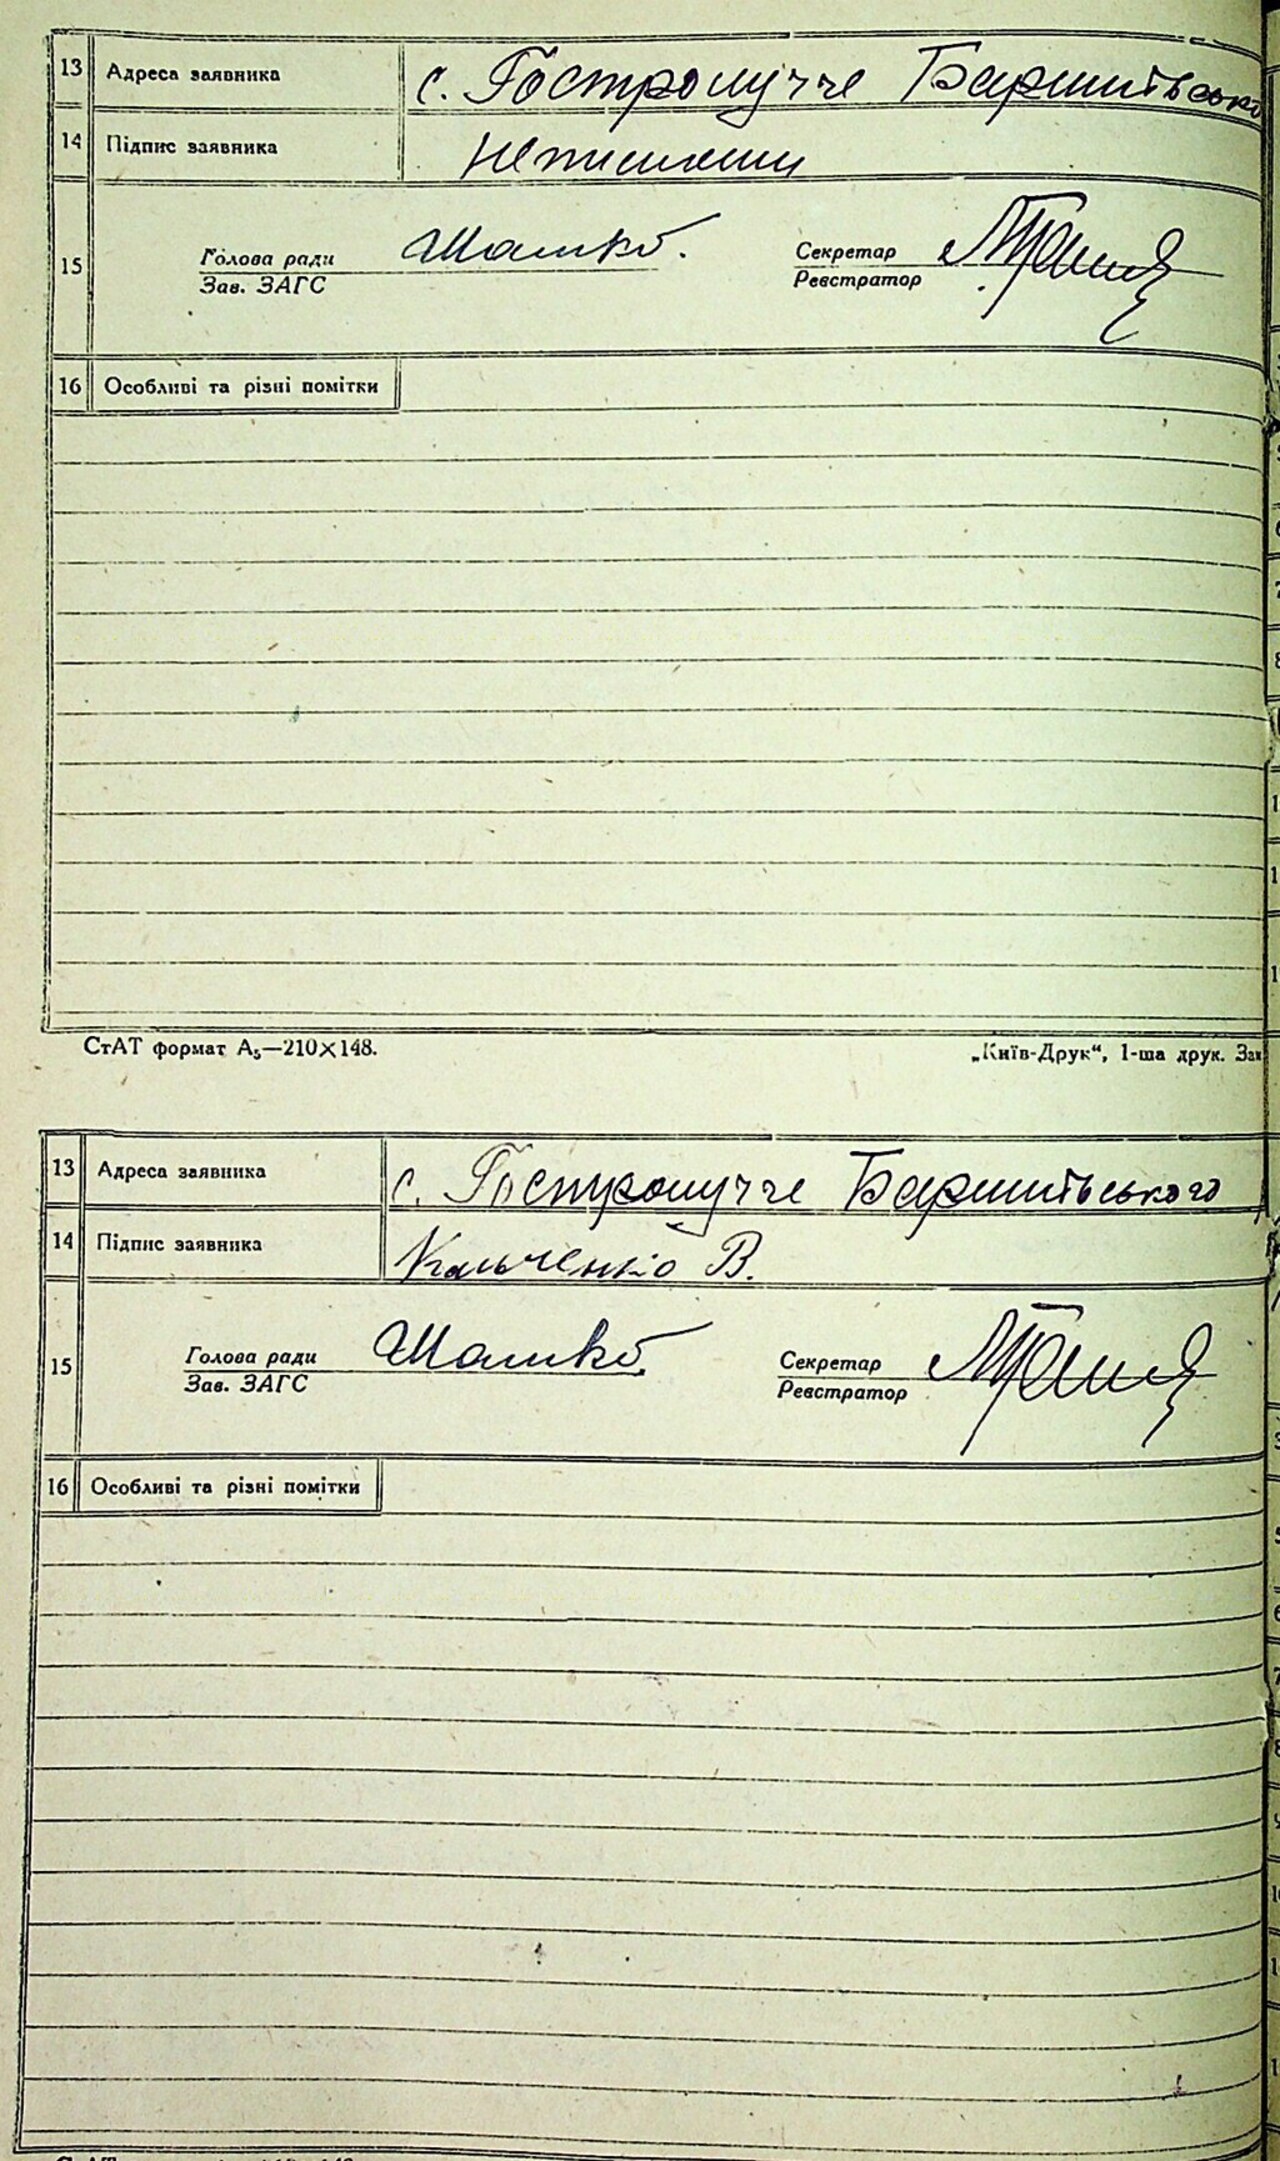 13 Адреса заявника с. Гостролуччє Баришівсько
14 Підпис заявника неписьмени
15 Голова ради Шамко. Секретар
Зав. ЗАГС Реєстратор
16 Особливі та різні помітки
СтАТ формат А₅—210×148. „Київ-Друк“, 1-ша друк. Зам
13 Адреса заявника с. Гостролуччє Баришівського
14 Підпис заявника Кальченко В.
15 Голова ради Шамко. Секретар
Зав. ЗАГС Реєстратор
16 Особливі та різні помітки